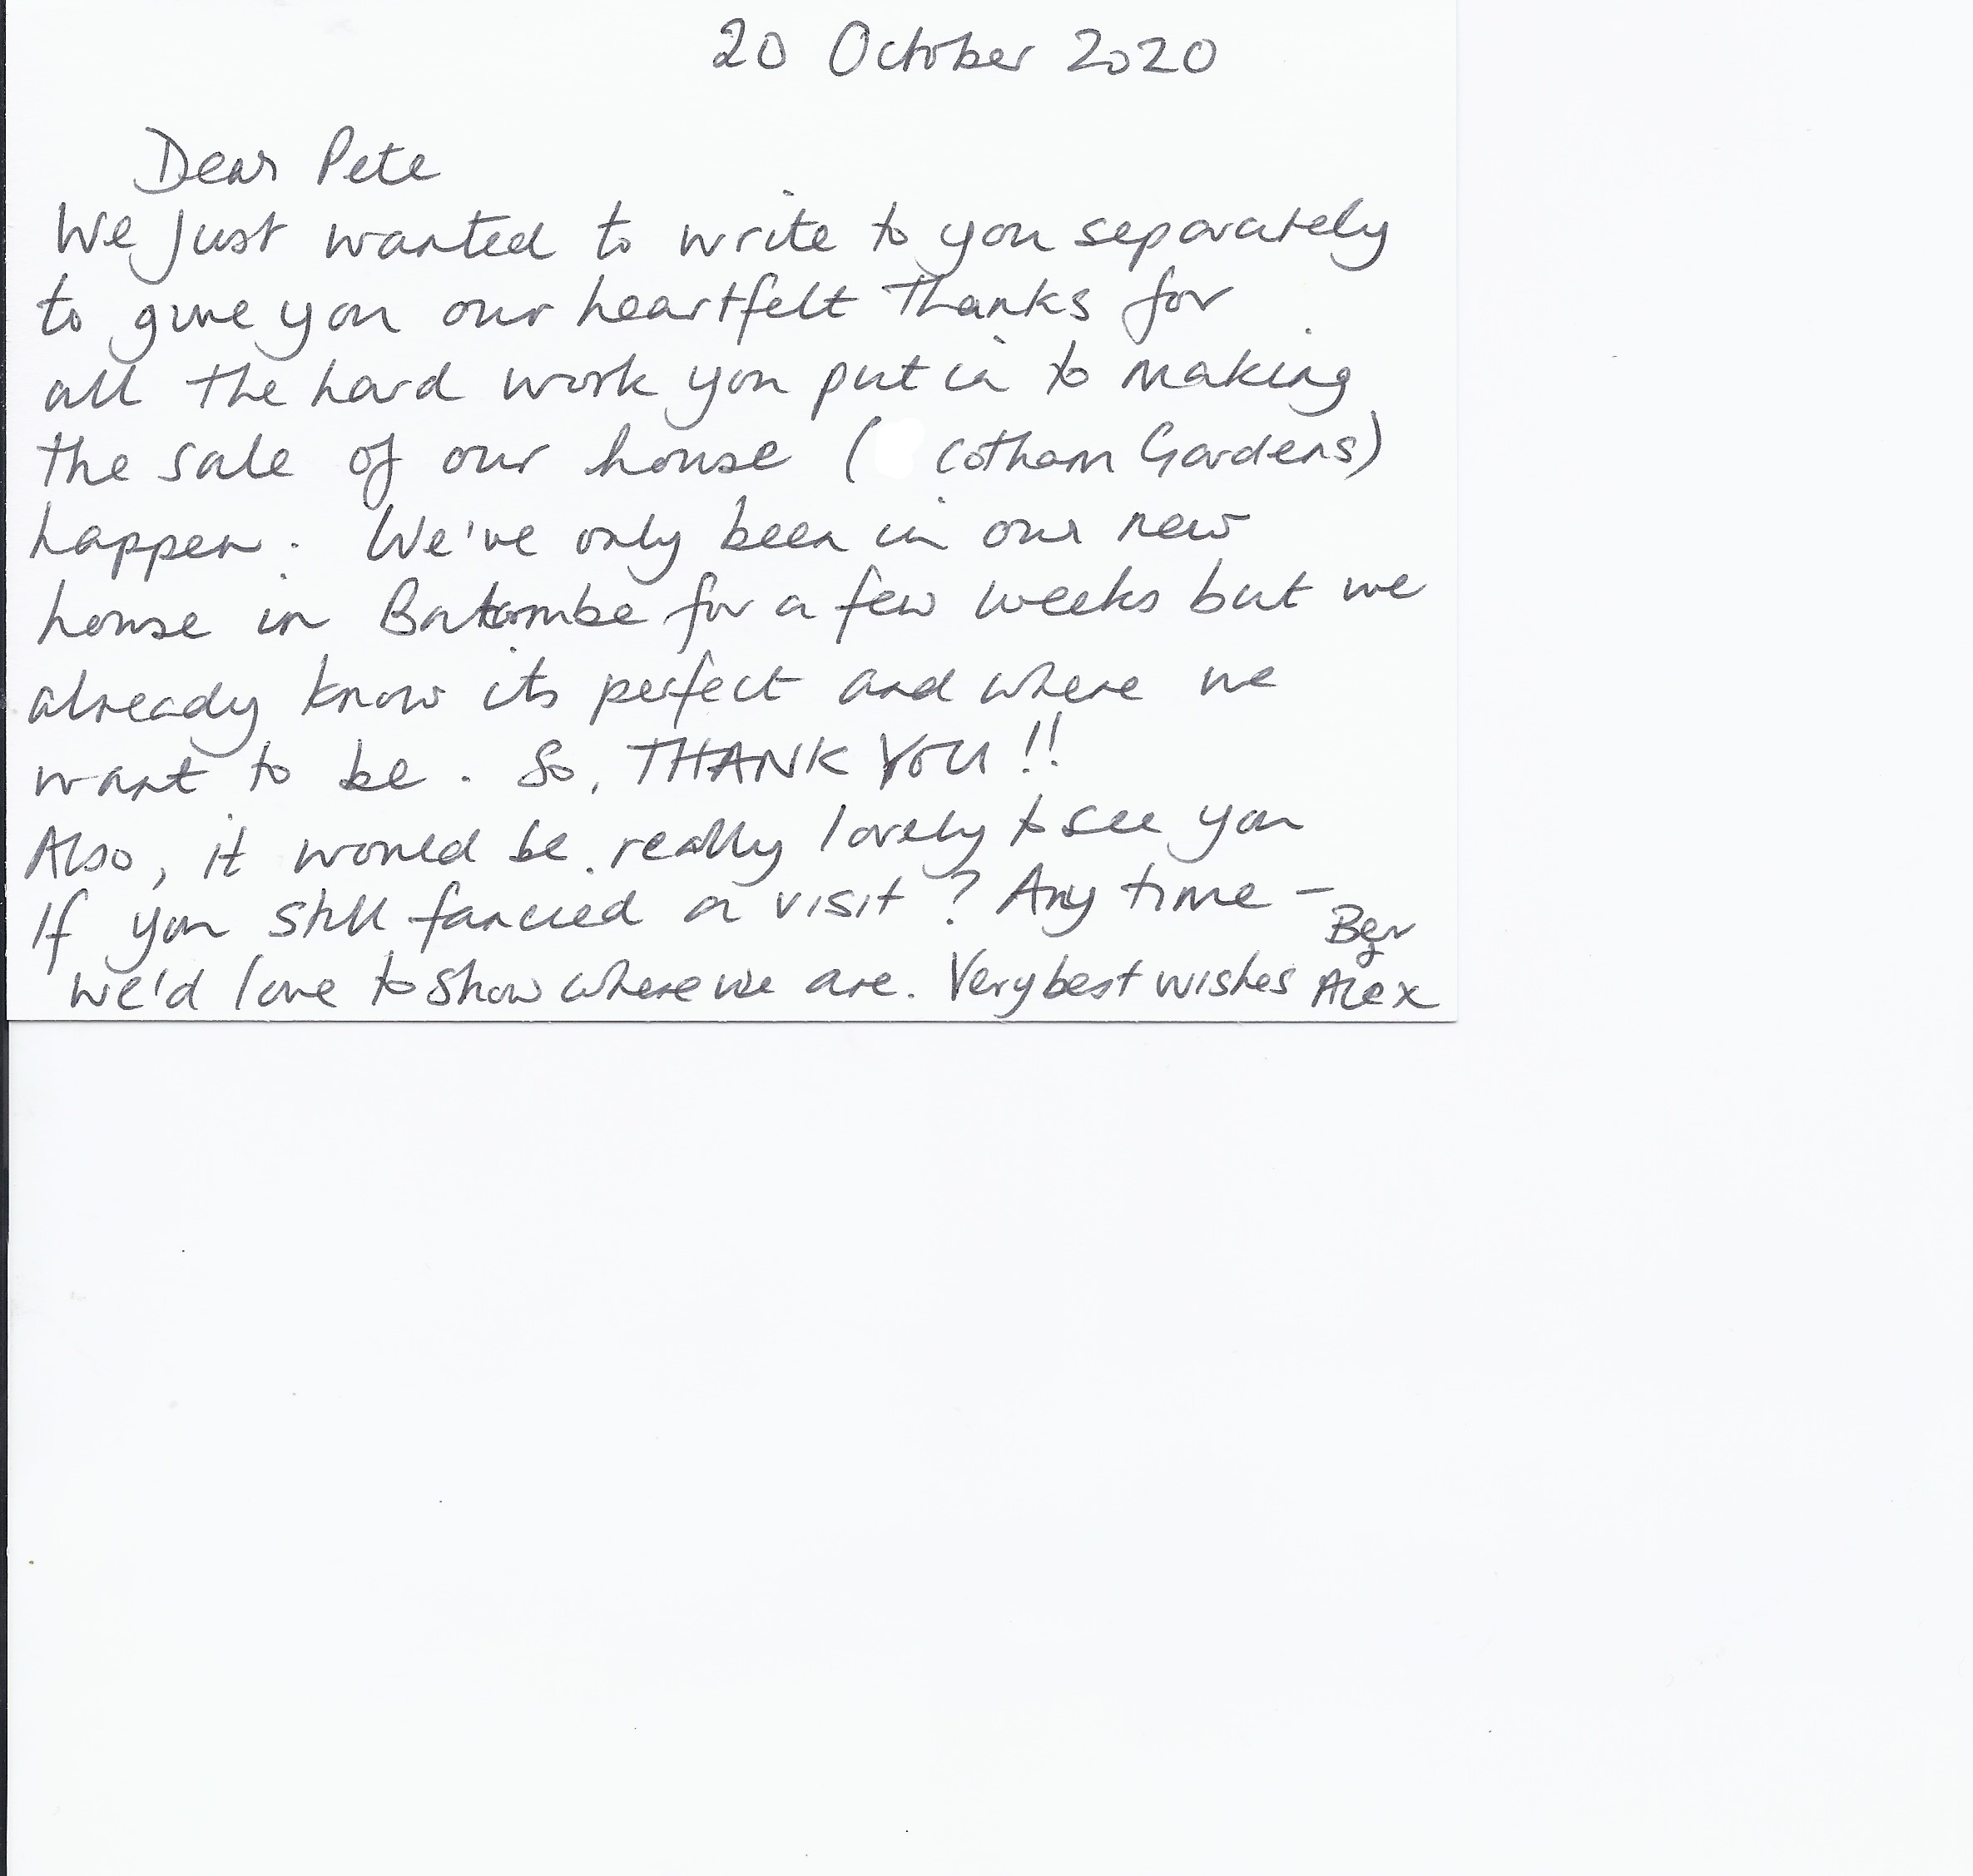 20 October 2020
Dear Pete
We just wanted to write to you separately
to give you our heartfelt thanks for
all the hard work you put in to making
the sale of our house ( Cotham Gardens)
happen. We've only been in our new
house in Batcombe for a few weeks but we
already know its perfect and where we
want to be. So, THANK YOU!!
Also, it would be really lovely to see you
If you still fancied a visit? Any time –
we'd love to show where we are. Very best wishes Alex